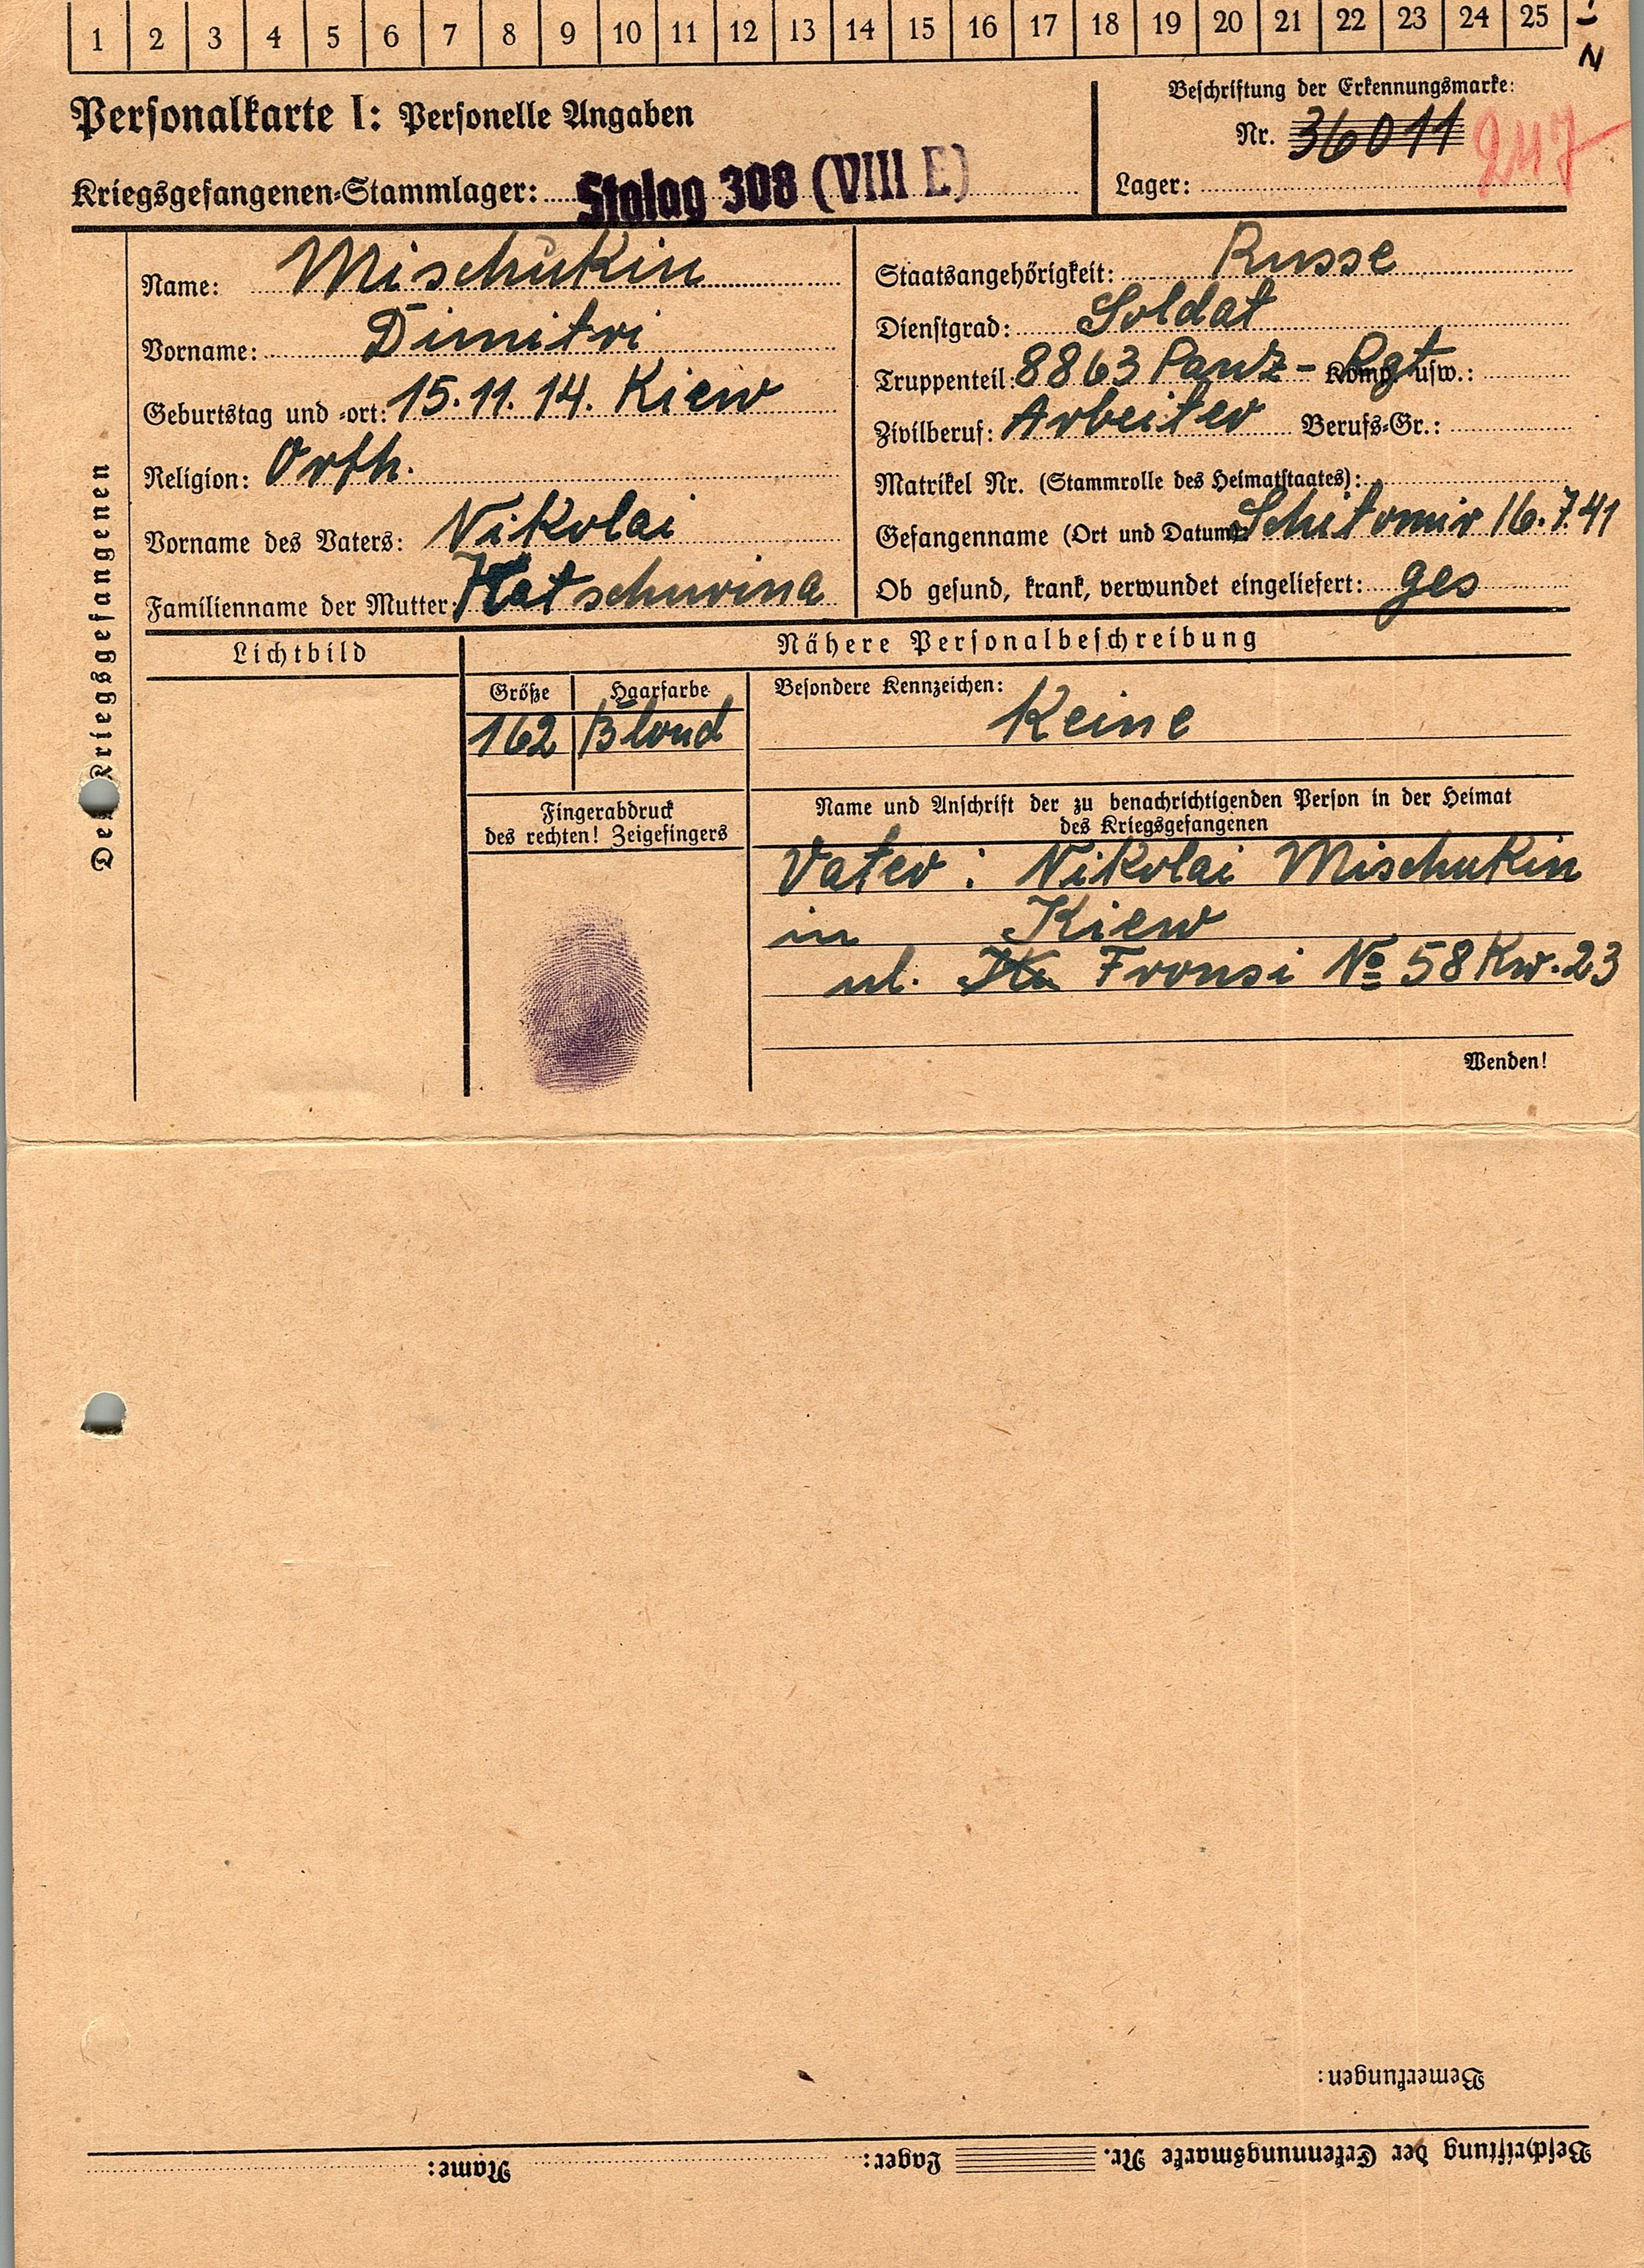 1 2 3 4 5 6 7 8 9 10 11 12 13 14 15 16 17 18 19 20 21 22 23 24 25
Personalkarte I: Personelle Angaben
Kriegsgefangenen-Stammlager: Stalag 308 (VIII E)
Beschriftung der Erkennungsmarke:
Nr. 36011
247
Lager:
Des Kriegsgefangenen
Name: Mischukin
Vorname: Dimitri
Geburtstag und -ort: 15.11.14. Kiew
Religion: Orth.
Vorname des Vaters: Nikolai
Familienname der Mutter: Katschurina
Staatsangehörigkeit: Russe
Dienstgrad: Soldat
Truppenteil: 8863 Panz-Rgt Komp. usw.:
Zivilberuf: Arbeiter Berufs-Gr.:
Matrikel Nr. (Stammrolle des Heimatstaates):
Gefangenname (Ort und Datum): Schitomir 16.7.41
Ob gesund, krank, verwundet eingeliefert: ges
Lichtbild
Nähere Personalbeschreibung
Größe Haarfarbe
162 Blond
Besondere Kennzeichen:
Keine
Fingerabdruck
des rechten! Zeigefingers
Name und Anschrift der zu benachrichtigenden Person in der Heimat
des Kriegsgefangenen
Vater: Nikolai Mischukin
in Kiew
ul. Fronsi № 58 Kw. 23
Wenden!
Bemerkungen:
Beschriftung der Erkennungsmarke Nr. Lager: Name: